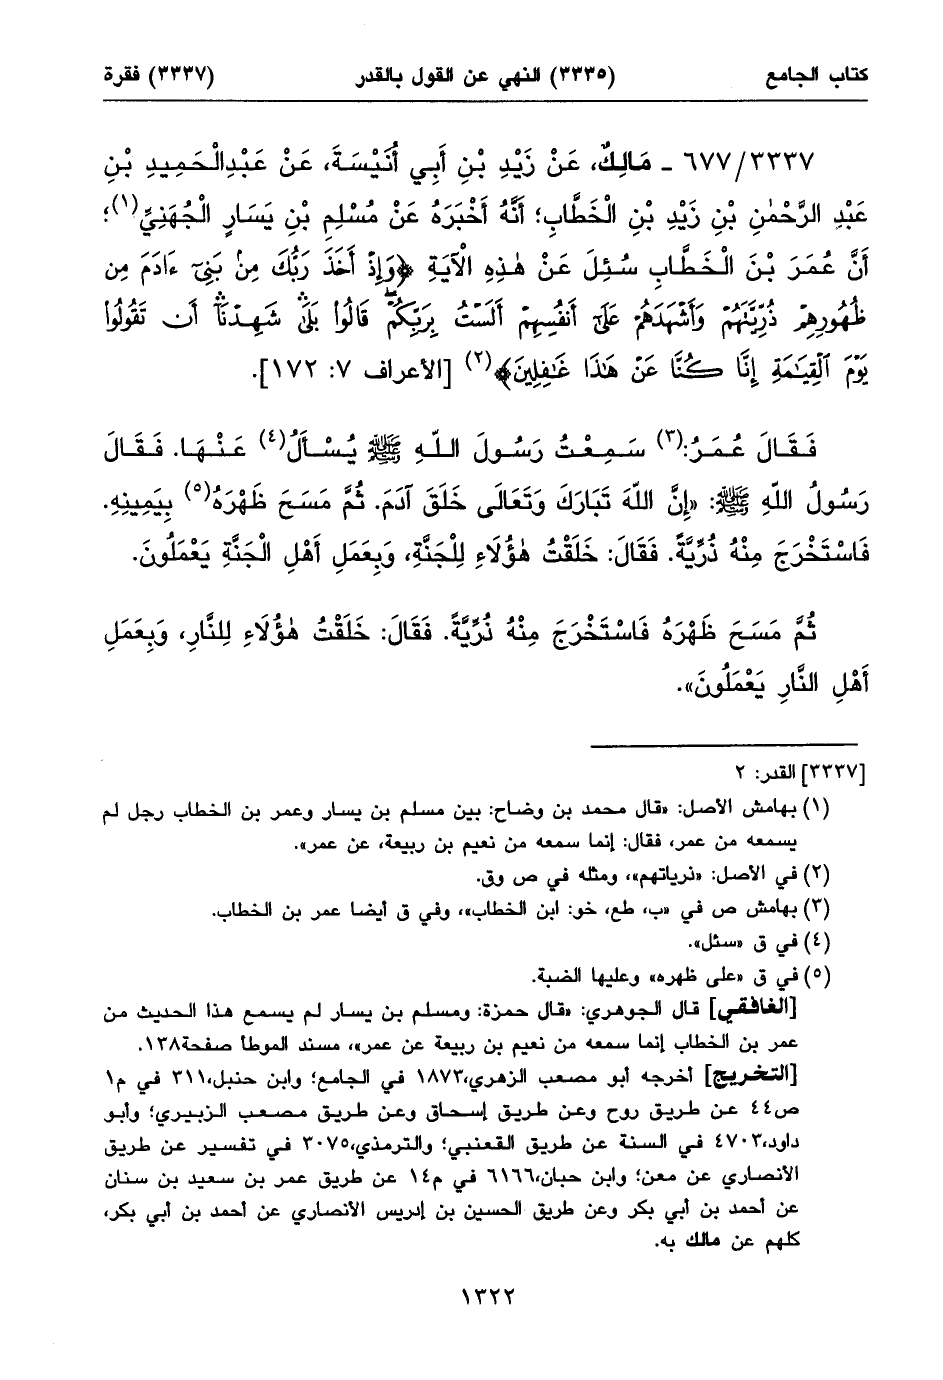 كتاب الجامع (٣٣٣٥) النهي عن القول بالقدر (٣٣٣٧) فقرة
٦٧٧/٣٣٣٧ - مَالِكٌ، عَنْ زَيْدِ بْنِ أَبِي أُنَيْسَةَ، عَنْ عَبْدِالْحَمِيدِ بْنِ
عَبْدِ الرَّحْمٰنِ بْنِ زَيْدِ بْنِ الْخَطَّابِ؛ أَنَّهُ أَخْبَرَهُ عَنْ مُسْلِمِ بْنِ يَسَارٍ الْجُهَنِيِّ(١)؛
أَنَّ عُمَرَ بْنَ الْخَطَّابِ سُئِلَ عَنْ هٰذِهِ الْآيَةِ ﴿وَإِذْ أَخَذَ رَبُّكَ مِنۢ بَنِىٓ ءَادَمَ مِن
ظُهُورِهِمْ ذُرِّيَّتَهُمْ وَأَشْهَدَهُمْ عَلَىٰٓ أَنفُسِهِمْ أَلَسْتُ بِرَبِّكُمْ ۖ قَالُوا۟ بَلَىٰ ۛ شَهِدْنَآ ۛ أَن تَقُولُوا۟
يَوْمَ ٱلْقِيَـٰمَةِ إِنَّا كُنَّا عَنْ هَـٰذَا غَـٰفِلِينَ﴾(٢) [الأعراف ٧: ١٧٢].
فَقَالَ عُمَرُ:(٣) سَمِعْتُ رَسُولَ اللّهِ ﷺ يُسْأَلُ(٤) عَنْهَا. فَقَالَ
رَسُولُ اللّهِ ﷺ: «إِنَّ اللّهَ تَبَارَكَ وَتَعَالَى خَلَقَ آدَمَ. ثُمَّ مَسَحَ ظَهْرَهُ(٥) بِيَمِينِهِ.
فَاسْتَخْرَجَ مِنْهُ ذُرِّيَّةً. فَقَالَ: خَلَقْتُ هٰؤُلَاءِ لِلْجَنَّةِ، وَبِعَمَلِ أَهْلِ الْجَنَّةِ يَعْمَلُونَ.
ثُمَّ مَسَحَ ظَهْرَهُ فَاسْتَخْرَجَ مِنْهُ ذُرِّيَّةً. فَقَالَ: خَلَقْتُ هٰؤُلَاءِ لِلنَّارِ، وَبِعَمَلِ
أَهْلِ النَّارِ يَعْمَلُونَ».
[٣٣٣٧] القدر: ٢
(١) بهامش الأصل: «قال محمد بن وضاح: بين مسلم بن يسار وعمر بن الخطاب رجل لم
يسمعه من عمر، فقال: إنما سمعه من نعيم بن ربيعة، عن عمر».
(٢) في الأصل: «ذرياتهم»، ومثله في ص وق.
(٣) بهامش ص في «ب، طع، خو: ابن الخطاب»، وفي ق أيضا عمر بن الخطاب.
(٤) في ق «سئل».
(٥) في ق «على ظهره» وعليها الضبة.
[الغافقي] قال الجوهري: «قال حمزة: ومسلم بن يسار لم يسمع هذا الحديث من
عمر بن الخطاب إنما سمعه من نعيم بن ربيعة عن عمر»، مسند الموطأ صفحة١٣٨.
[التخريج] أخرجه أبو مصعب الزهري،١٨٧٣ في الجامع؛ وابن حنبل،٣١١ في م١
ص٤٤ عن طريق روح وعن طريق إسحاق وعن طريق مصعب الزبيري؛ وأبو
داود،٤٧٠٣ في السنة عن طريق القعنبي؛ والترمذي،٣٠٧٥ في تفسير عن طريق
الأنصاري عن معن؛ وابن حبان،٦١٦٦ في م١٤ عن طريق عمر بن سعيد بن سنان
عن أحمد بن أبي بكر وعن طريق الحسين بن إدريس الأنصاري عن أحمد بن أبي بكر،
كلهم عن مالك به.
١٣٢٢